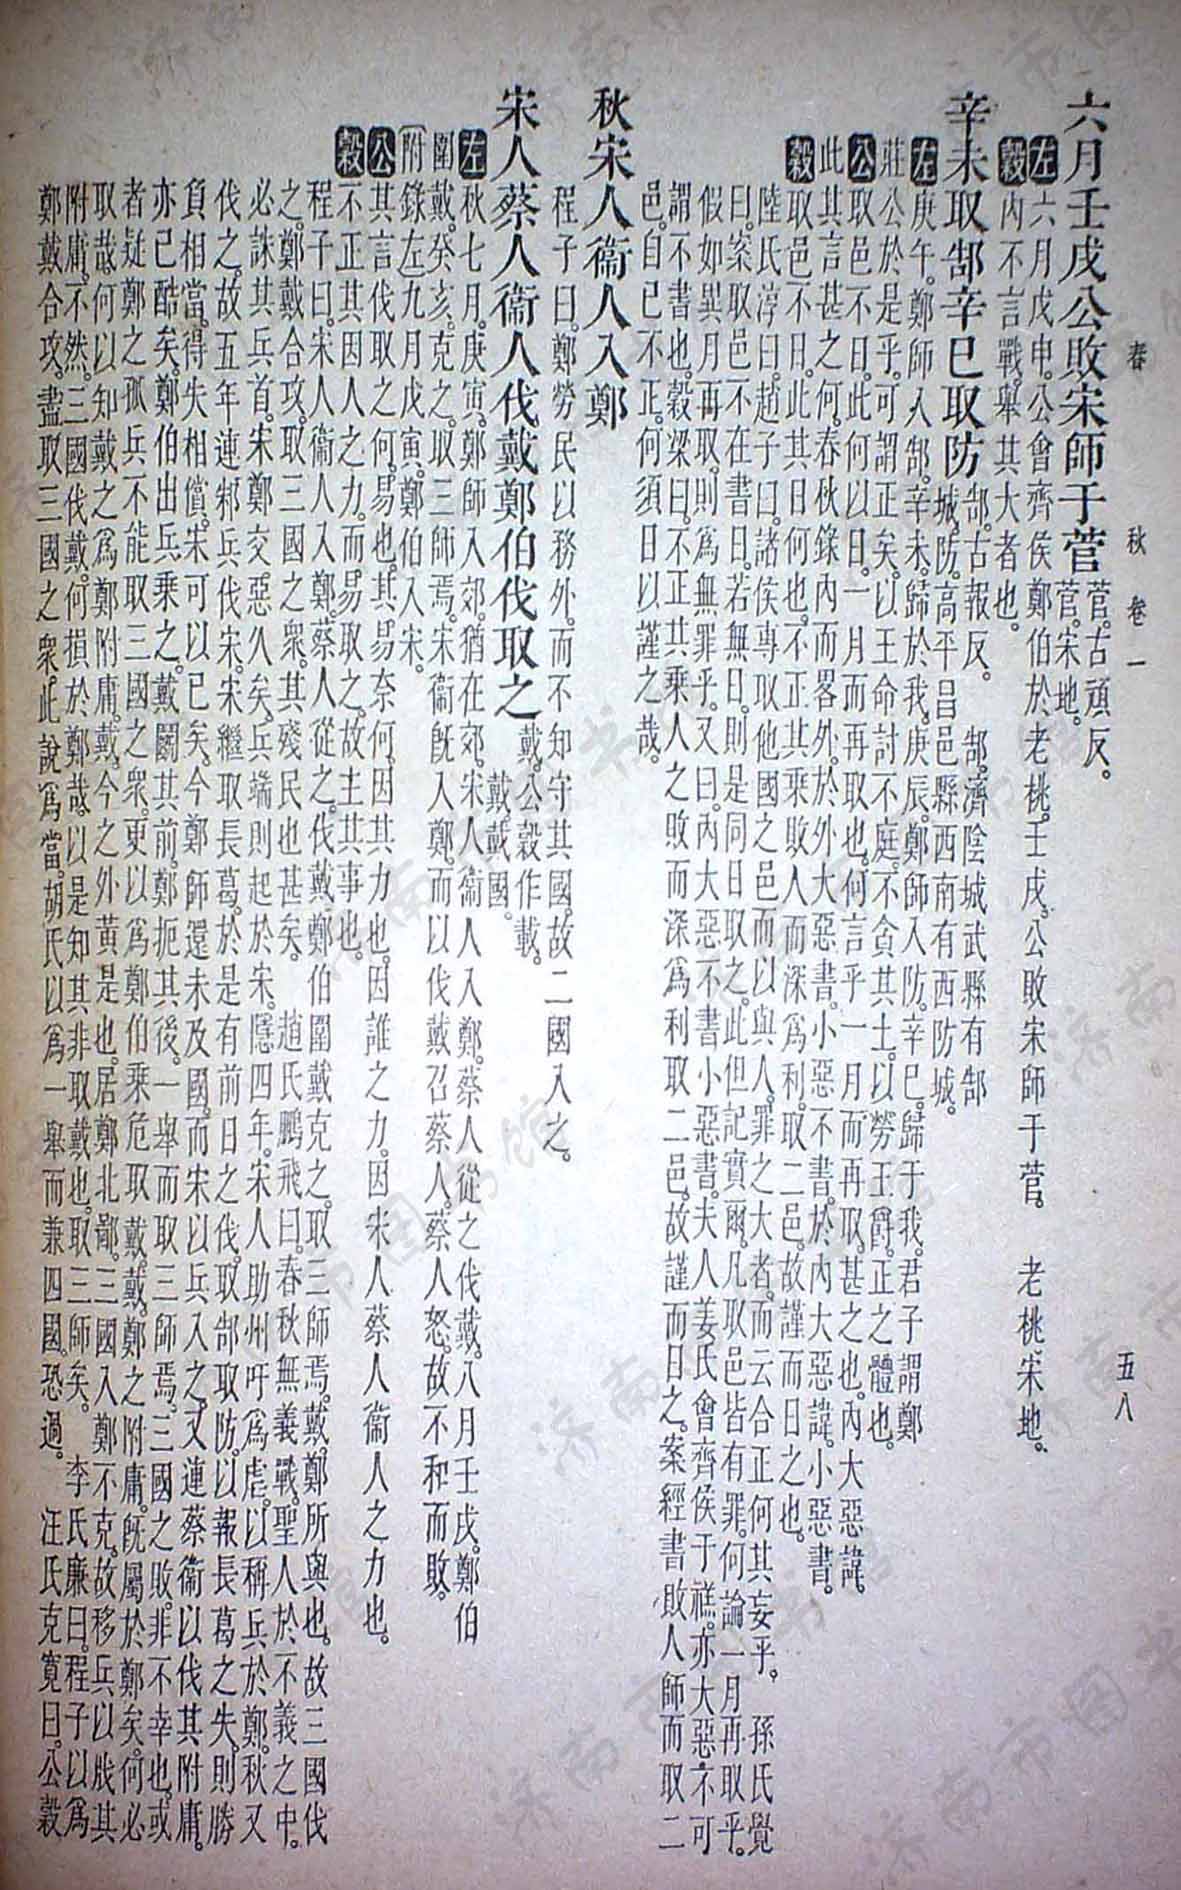 春秋 卷一 五八
六月壬戌公敗宋師于菅 菅古頑反。
菅宋地。
左 六月戊申。公會齊侯鄭伯於老桃。壬戌。公敗宋師于菅。 老桃。宋地。
穀 內不言戰。舉其大者也。
辛未取郜辛巳取防 郜。古報反。 郜。濟陰城武縣有郜
城。防。高平昌邑縣西南有西防城。
左 庚午。鄭師入郜。辛未。歸於我。庚辰。鄭師入防。辛巳。歸于我。君子謂鄭
莊公於是乎。可謂正矣。以王命討不庭。不貪其土。以勞王爵。正之體也。
公 取邑不日。此何以日。一月而再取也。何言乎一月而再取。甚之也。內大惡諱。
此其言甚之何。春秋錄內而畧外。於外大惡書。小惡不書。於內大惡諱。小惡書。
穀 取邑不日。此其日何也。不正其乘敗人而深爲利。取二邑。故謹而日之也。
陸氏淳曰。趙子曰。諸侯專取他國之邑而以與人。罪之大者。而云合正何其妄乎。 孫氏覺
曰。案取邑不在書日。若無日。則是同日取之。此但記實爾。凡取邑皆有罪。何論一月再取乎。
假如異月再取。則爲無罪乎。又曰。內大惡不書小惡書。夫人姜氏會齊侯于禚。亦大惡不可
謂不書也。穀梁曰。不正其乘人之敗而深爲利取二邑。故謹而日之。案經書敗人師而取二
邑。自已不正。何須日以謹之哉。
秋宋人衞人入鄭
程子曰。鄭勞民以務外。而不知守其國。故二國入之。
宋人蔡人衞人伐戴鄭伯伐取之 戴。公穀作載。
戴。戴國。
左 秋七月。庚寅。鄭師入郊。猶在郊。宋人衞人入鄭。蔡人從之伐戴。八月壬戌。鄭伯
圍戴。癸亥。克之。取三師焉。宋衞旣入鄭。而以伐戴召蔡人。蔡人怒。故不和而敗。
附錄左 九月戊寅。鄭伯入宋。
公 其言伐取之何。易也。其易奈何。因其力也。因誰之力。因宋人蔡人衞人之力也。
穀 不正其因人之力。而易取之。故主其事也。
程子曰。宋人衞人入鄭。蔡人從之。伐戴鄭伯圍戴克之。取三師焉。戴鄭所與也。故三國伐
之。鄭戴合攻。取三國之衆。其殘民也甚矣。 趙氏鵬飛曰。春秋無義戰。聖人於不義之中。
必誅其兵首。宋鄭交惡久矣。兵端則起於宋。隱四年。宋人助州吁爲虐。以稱兵於鄭。秋又
伐之。故五年連邾兵伐宋。宋繼取長葛。於是有前日之伐。取郜取防。以報長葛之失。則勝
負相當。得失相償。宋可以已矣。今鄭師還未及國。而宋以兵入之。又連蔡衞以伐其附庸。
亦已酷矣。鄭伯出兵乘之。戴鬭其前。鄭扼其後。一舉而取三師焉。三國之敗。非不幸也。或
者疑鄭之孤兵不能取三國之衆。更以爲鄭伯乘危取戴。戴。鄭之附庸。旣屬於鄭矣。何必
取哉。何以知戴之爲鄭附庸。戴。今之外黃是也。居鄭北鄙。三國入鄭不克。故移兵以戕其
附庸。不然。三國伐戴。何損於鄭哉。以是知其非取戴也。取三師矣。 李氏廉曰。程子以爲
鄭戴合攻。盡取三國之衆。此說爲當。胡氏以爲一舉而兼四國。恐過。 汪氏克寬曰。公穀